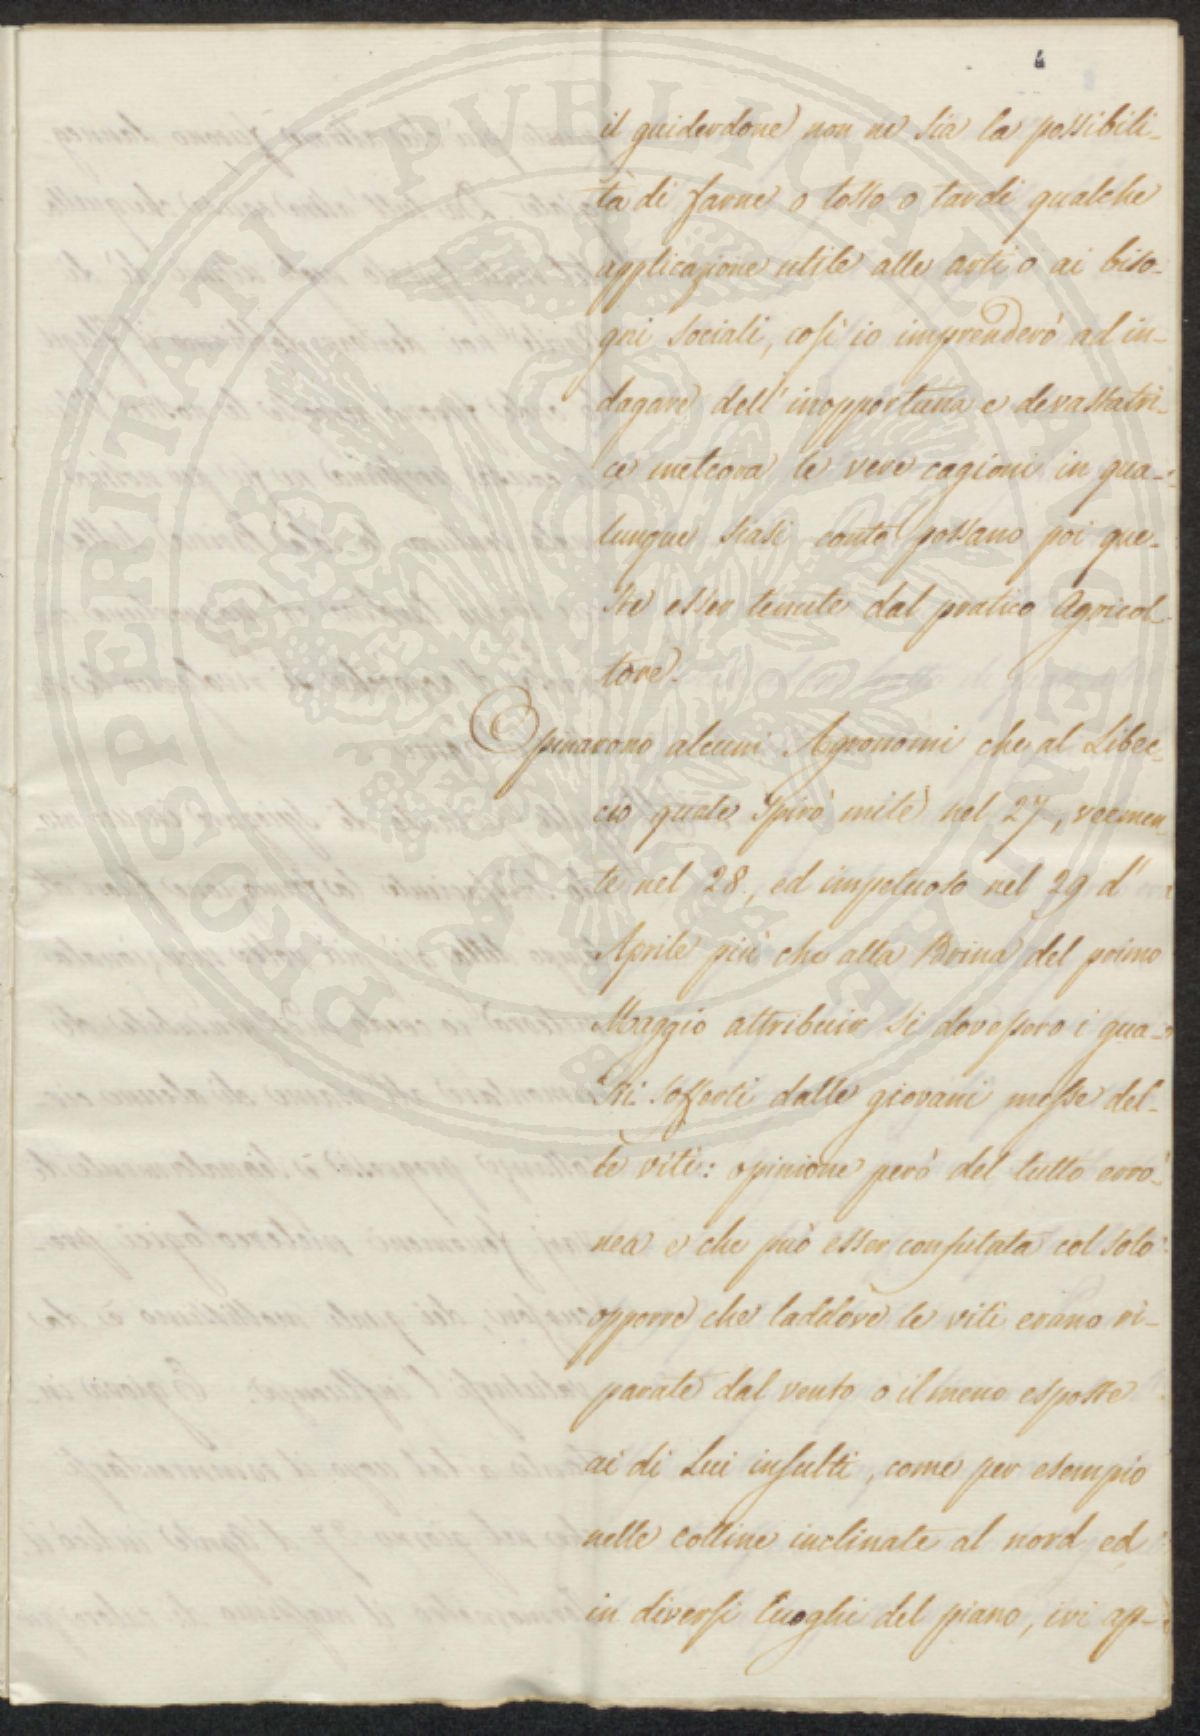 il guiderdone non ne sia la possibili-
tà di farne o tosto o tardi qualche
applicazione utile alle arti o ai biso-
gni sociali, così io imprenderò ad in-
dagare dell' inopportuna e devastatri-
ce meteora le vere cagioni in qua-
lunque siasi conto possano poi que-
ste esser tenute dal pratico Agricol-
tore.
Opinarono alcuni Agronomi che al Libec-
cio quale spirò mite nel 27, veemen-
te nel 28., ed impetuoso nel 29 d'
Aprile più che alla Brina del primo
Maggio attribuir si dovessero i gua-
sti sofferti dalle giovani messe del-
le viti: opinione però del tutto erro-
nea e che può esser confutata col solo
opporre che laddove le viti erano ri-
parate dal vento o il meno esposte
ai di Lui insulti, come per esempio
nelle colline inclinate al nord ed
in diversi luoghi del piano, ivi ap-
PROSPERITATI PVBLICAE AVGENDAE